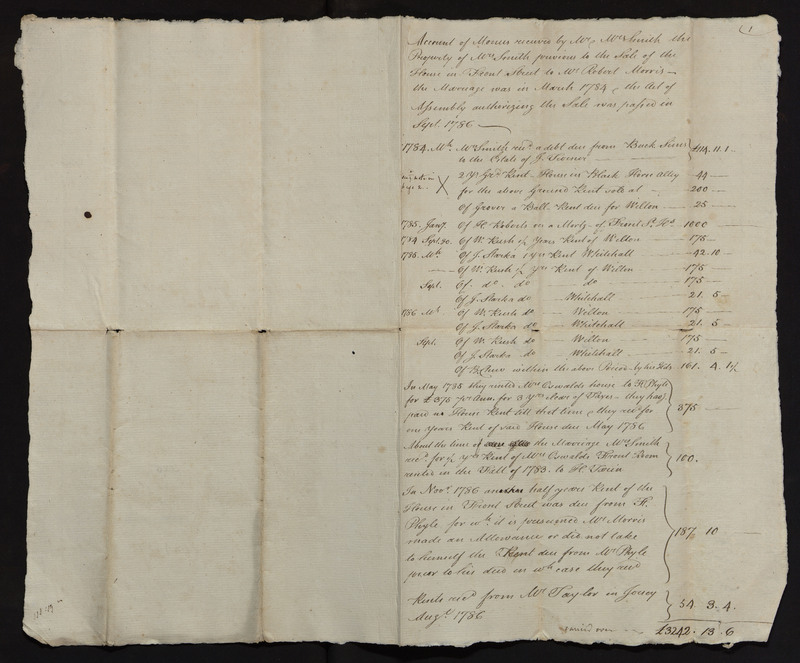 (1
Account of Monies receiv'd by Mr. & Mrs. Smith the
Property of Mrs. Smith previous to the Sale of the
House in Front Street to Mr. Robert Morris —
the Marriage was in March 1784 & the Act of
Assembly authorizing the Sale was passed in
Sept. 1786 —
1784. Mh. Mr. Smith recd. a debt due from Buck Sims
to the Estate of J. — — £114. 11. 1 —
X 2 yrs. Grd. Rent — House in Black Horse Alley — 44 —
for the above Ground Rent sold at — 200 —
Of Grover a Ball. Rent due for Wilton — 25 —
1785. Jany. Of H. Roberts on a Mortg. of Front St. Ho. 1000 —
1784 Sept. 30. Of W. Rush ½ Years Rent of Wilton — 175 —
1785. Mh. Of J. Starka 1 yrs Rent Whitehall — 42. 10 —
— Of W. Rush ½ yrs Rent of Wilton — 175 —
Sept. Of. do. do do — 175 —
Of J. Starka do — Whitehall — 21. 5 —
1786 Mh Of W. Rush do — Wilton — 175 —
Of J. Starka do — Whitehall — 21. 5 —
Sept. Of W. Rush do — Wilton — 175 —
Of J. Starka do — Whitehall — 21. 5 —
Of within the above Period by his 161. 4. 1½
In May 1785 they rented Mrs. Oswalds house to F. Phyle
for £375 pr. Ann. for 3 yrs. clear of Taxes — they had
paid no House Rent till that time & they recd. for
one years Rent of said House due May 1786 375 —
About the time of the Marriage Mr. Smith
recd. for ½ yrs Rent of Mrs. Oswalds Front Room
rented in the Fall of 1783. to H. 100.
In Novr. 1786 another half years Rent of the
House in Front Street was due from F.
Phyle for wh. it is presumed Mr. Morris
made an Allowance or did not take
to himself the Rent due from Mr. Phyle
prior to his deed in wh. case they recd 187 10 —
Rents recd. from Mr. Taylor in Jersey
Augt. 1786 54. 3. 4.
carried over — £3242. 13. 6